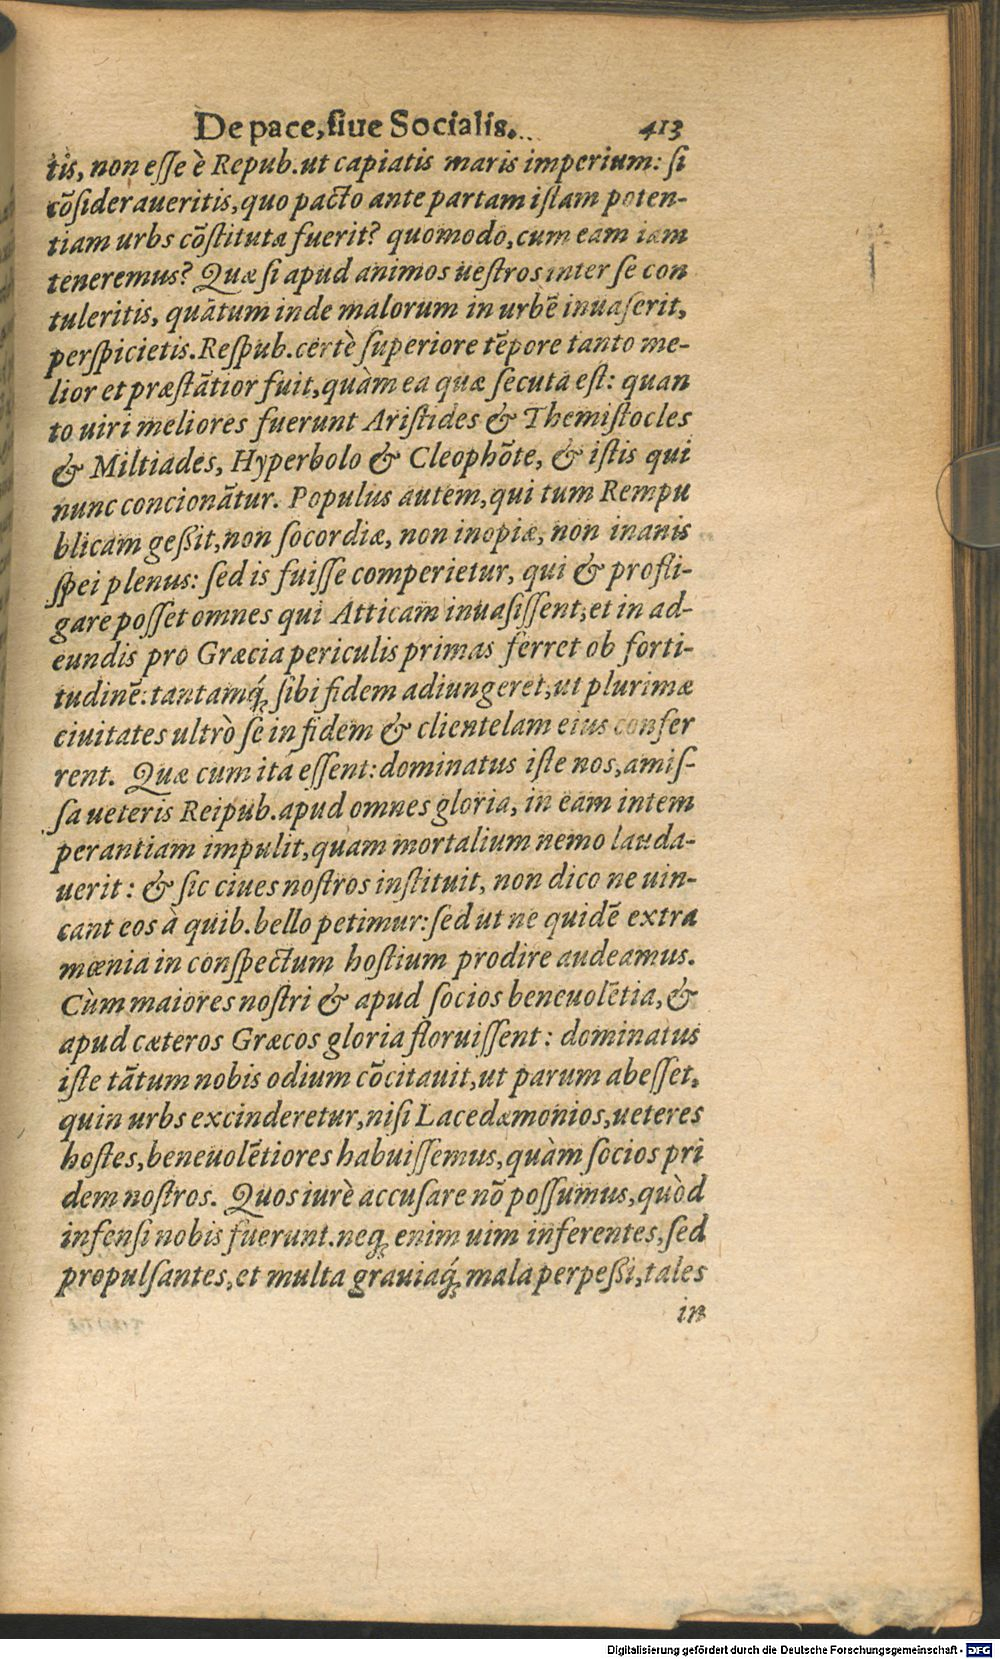 De pace, siue Socialis. 413
tis, non esse è Repub. ut capiatis maris imperium: si
cõsideraueritis, quo pacto ante partam istam poten-
tiam urbs cõstituta fuerit? quomodo, cum eam iam
teneremus? Quæ si apud animos uestros inter se con
tuleritis, quãtum inde malorum in urbẽ inuaserit,
perspicietis. Respub. certè superiore tẽpore tanto me-
lior et præstãtior fuit, quàm ea quæ secuta est: quan
to uiri meliores fuerunt Aristides & Themistocles
& Miltiades, Hyperbolo & Cleophõte, & istis qui
nunc concionãtur. Populus autem, qui tum Rempu
blicam geßit, non socordiæ, non inopiæ, non inanis
spei plenus: sed is fuisse comperietur, qui & profli-
gare posset omnes qui Atticam inuasissent, et in ad-
eundis pro Græcia periculis primas ferret ob forti-
tudinẽ: tantamq́; sibi fidem adiungeret, ut plurimæ
ciuitates ultrò se in fidem & clientelam eius confer
rent. Quæ cum ita essent: dominatus iste nos, amis-
sa ueteris Reipub. apud omnes gloria, in eam intem
perantiam impulit, quam mortalium nemo lauda-
uerit: & sic ciues nostros instituit, non dico ne uin-
cant eos à quib. bello petimur: sed ut ne quidẽ extra
mœnia in conspectum hostium prodire audeamus.
Cùm maiores nostri & apud socios beneuolẽtia, &
apud cæteros Græcos gloria floruissent: dominatus
iste tãtum nobis odium cõcitauit, ut parum abesset,
quin urbs excinderetur, nisi Lacedæmonios, ueteres
hostes, beneuolẽtiores habuissemus, quàm socios pri
dem nostros. Quos iurè accusare nõ possumus, quòd
infensi nobis fuerunt. neq; enim uim inferentes, sed
propulsantes, et multa grauiaq́; mala perpeßi, tales
in
Digitalisierung gefördert durch die Deutsche Forschungsgemeinschaft - DFG